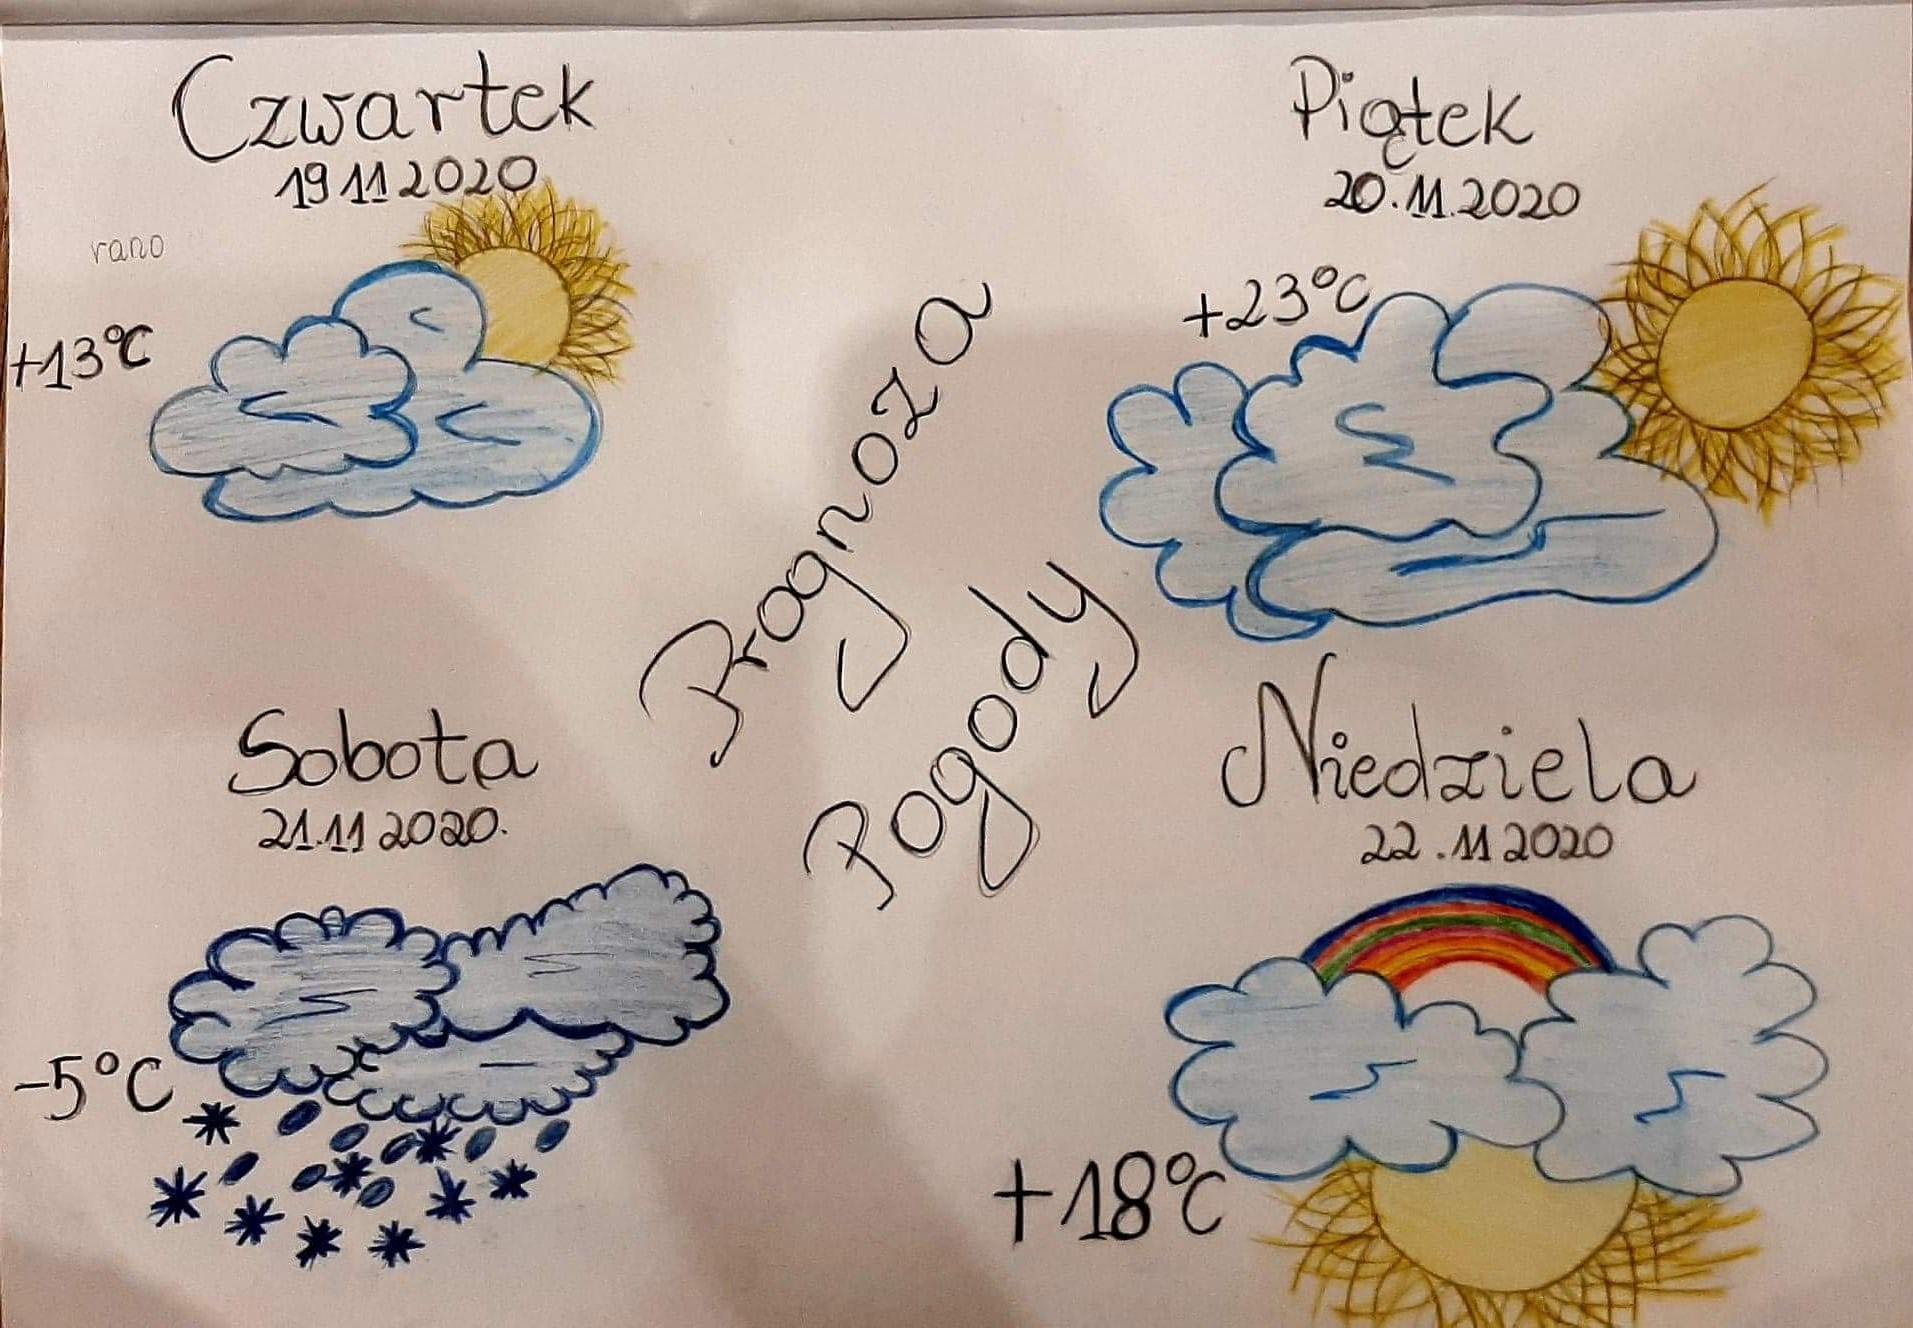 Czwartek
19 11 2020
rano
+13°C
Piątek
20.11.2020
+23°C
Prognoza
Pogody
Sobota
21.11 2020.
-5°C
Niedziela
22.11 2020
+18°C